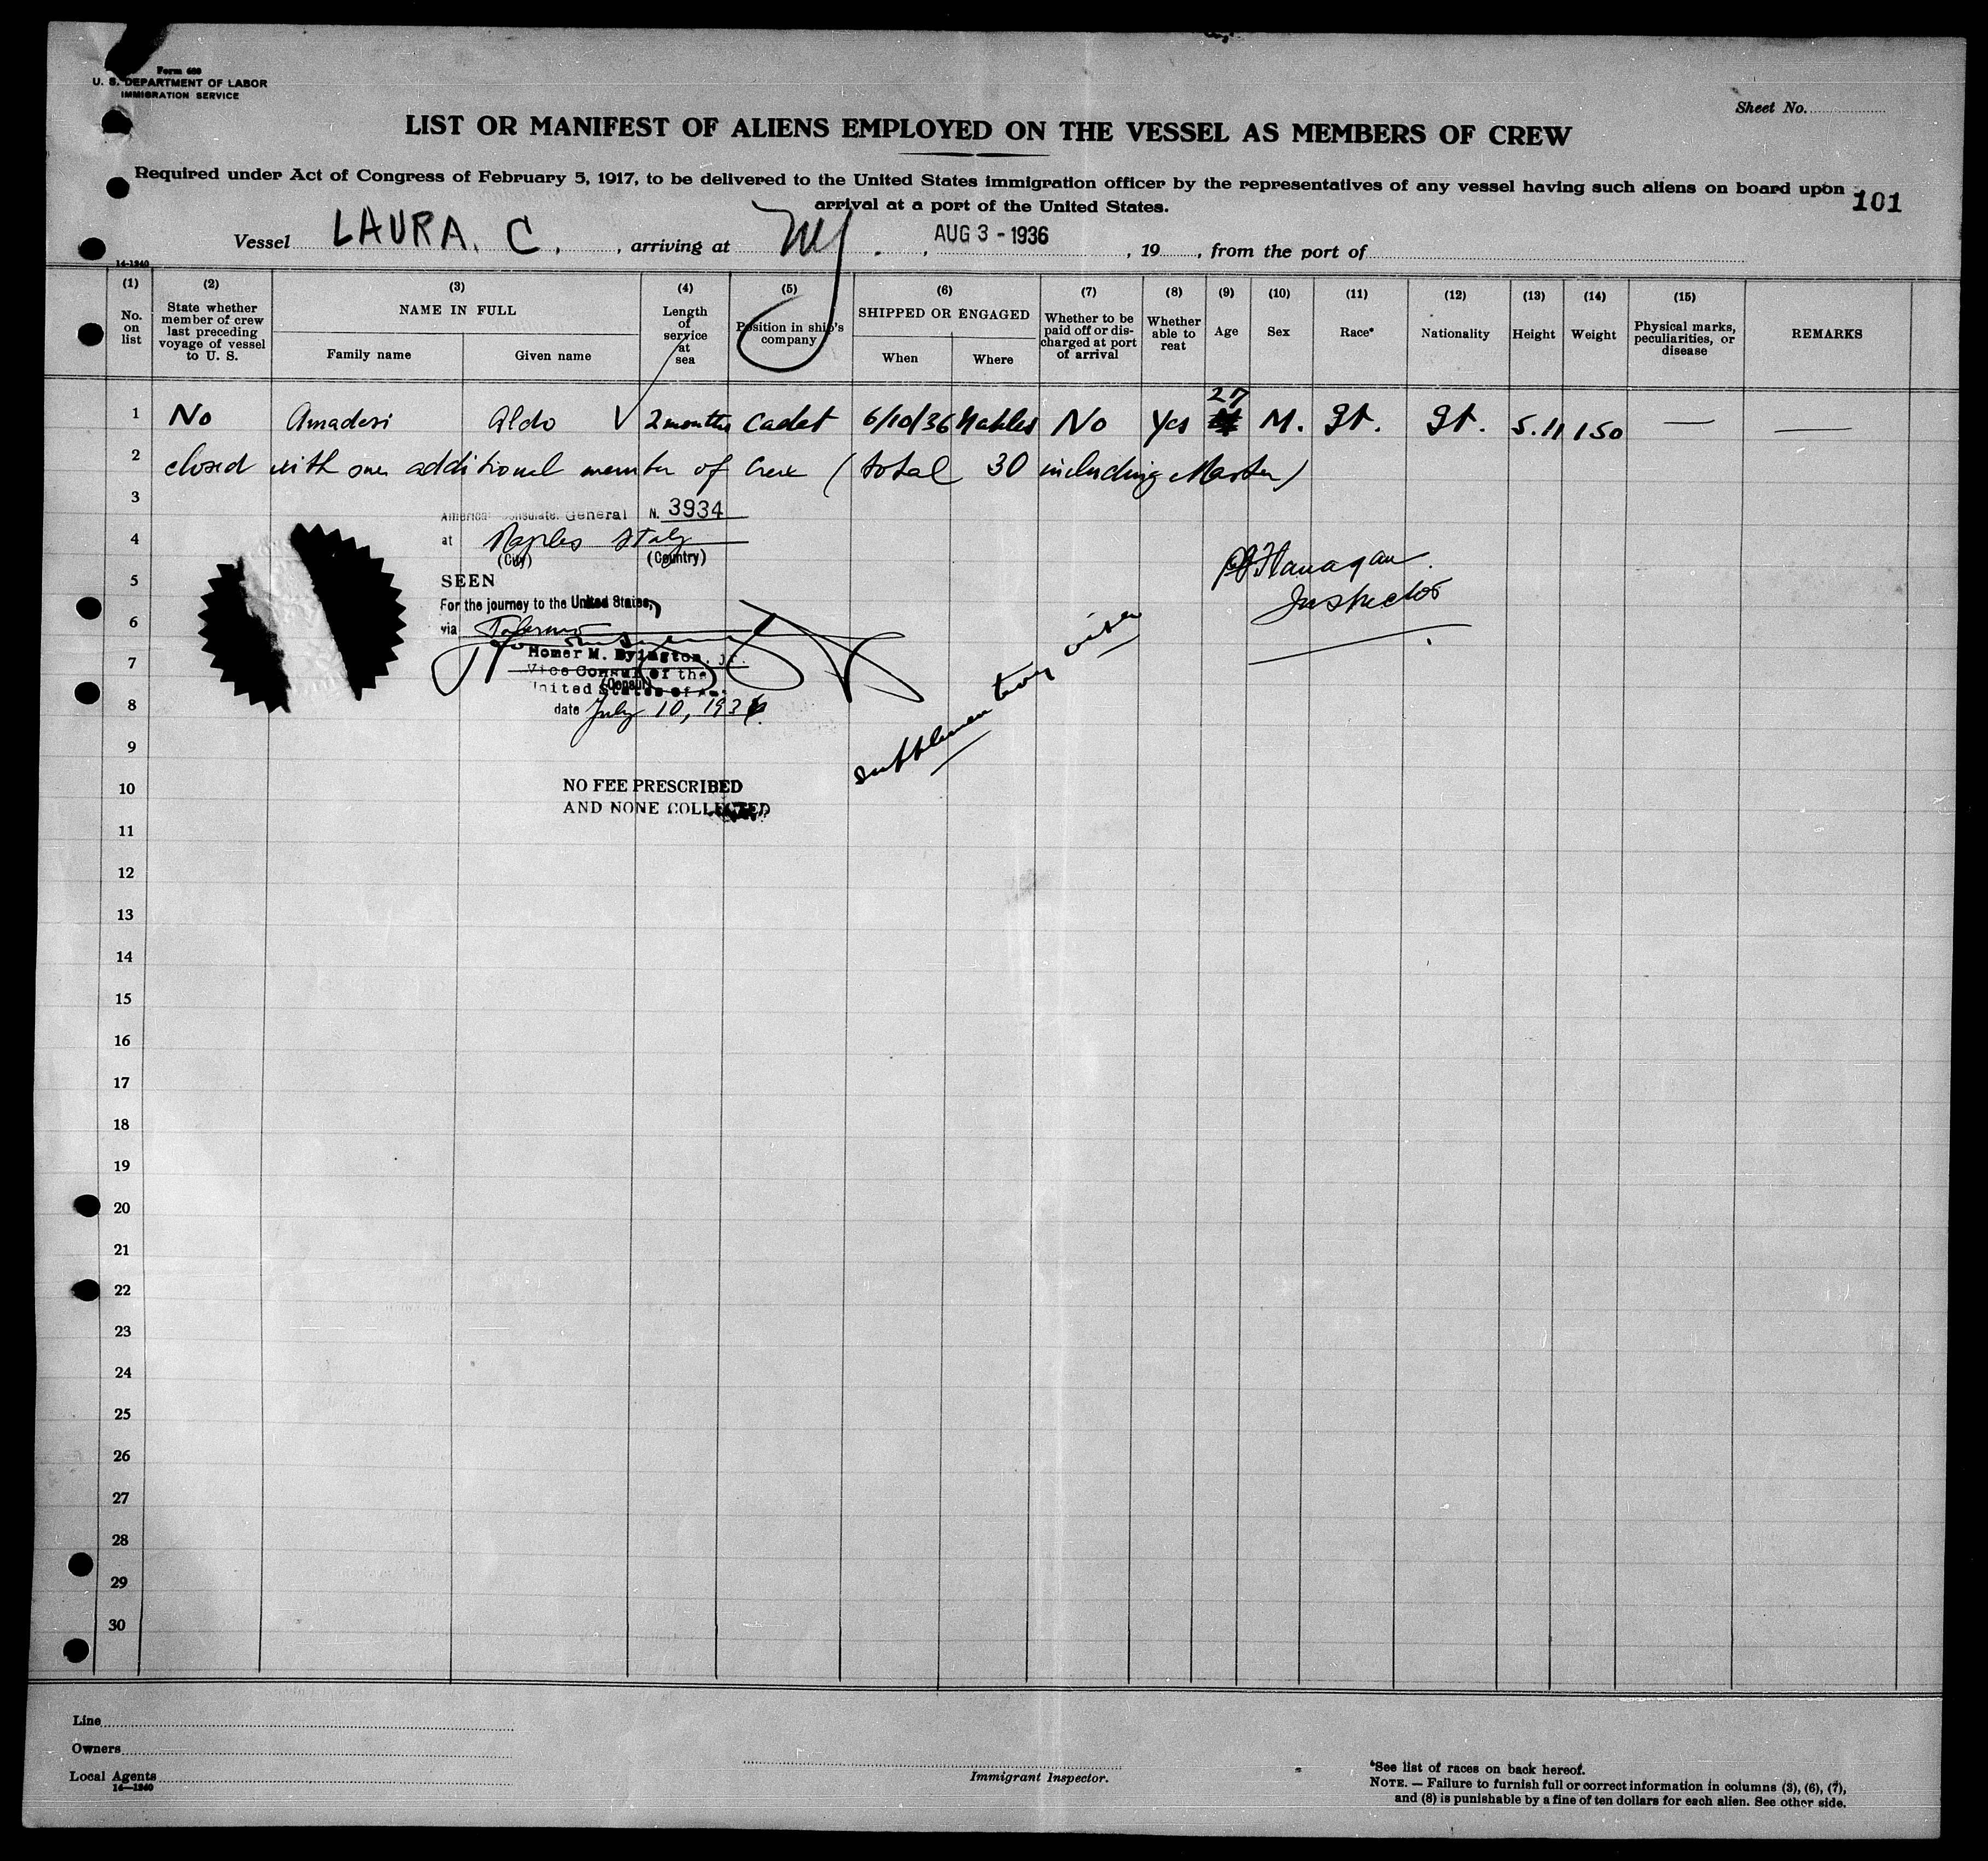 Form 680
U. S. DEPARTMENT OF LABOR
IMMIGRATION SERVICE
Sheet No.
LIST OR MANIFEST OF ALIENS EMPLOYED ON THE VESSEL AS MEMBERS OF CREW
Required under Act of Congress of February 5, 1917, to be delivered to the United States immigration officer by the representatives of any vessel having such aliens on board upon
arrival at a port of the United States.
101
Vessel LAURA. C. , arriving at NY. , AUG 3 - 1936 , 19 , from the port of
14-1240
(1) (2) (3) (4) (5) (6) (7) (8) (9) (10) (11) (12) (13) (14) (15)
No. on list
State whether member of crew last preceding voyage of vessel to U. S.
NAME IN FULL
Family name
Given name
Length of service at sea
Position in ship's company
SHIPPED OR ENGAGED
When
Where
Whether to be paid off or discharged at port of arrival
Whether able to read
Age
Sex
Race*
Nationality
Height
Weight
Physical marks, peculiarities, or disease
REMARKS
1 No Amadesi Aldo V 2 months Cadet 6/10/36 Naples No Yes 27 M. It. It. 5.11 150 — —
2 closed with one additional member of crew (total 30 including Master)
3
American Consulate General N. 3934
4
at Naples Italy
(City) (Country)
5
SEEN
For the journey to the United States,
6
via Palermo
Homer M. Byington, jr.
7
Vice Consul of the
(Consul)
United States of Am
8
date July 10, 1936.
PJ Flanagan
Inspector
supplementary visa
9
10
NO FEE PRESCRIBED
AND NONE COLLECTED
11
12
13
14
15
16
17
18
19
20
21
22
23
24
25
26
27
28
29
30
Line
Owners
Local Agents
14-1240
Immigrant Inspector.
*See list of races on back hereof.
NOTE. — Failure to furnish full or correct information in columns (3), (6), (7),
and (8) is punishable by a fine of ten dollars for each alien. See other side.